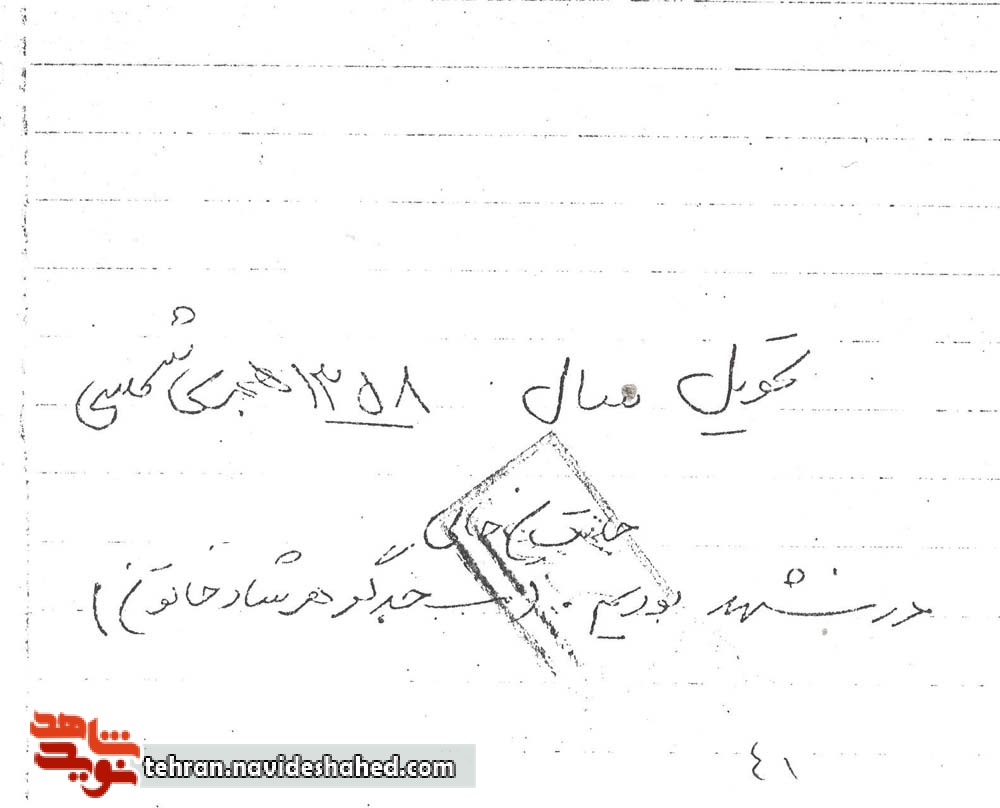 تحویل سال ۱۳۵۸ هجری شمسی
جایتان خالی
در مشهد بودیم. (مسجد گوهرشاد خاتون)
۴۱
شاهد
نوید
tehran.navideshahed.com